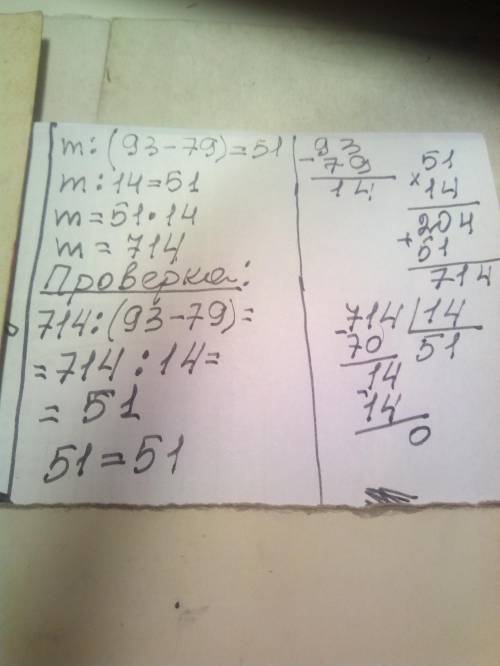 m:(93-79)=51
m:14=51
m=51·14
m=714
Проверка:
714:(93-79)=
=714:14=
=51
51=51
93
-79
14
51
×14
204
+51
714
-714 | 14
70 51
14
-14
0